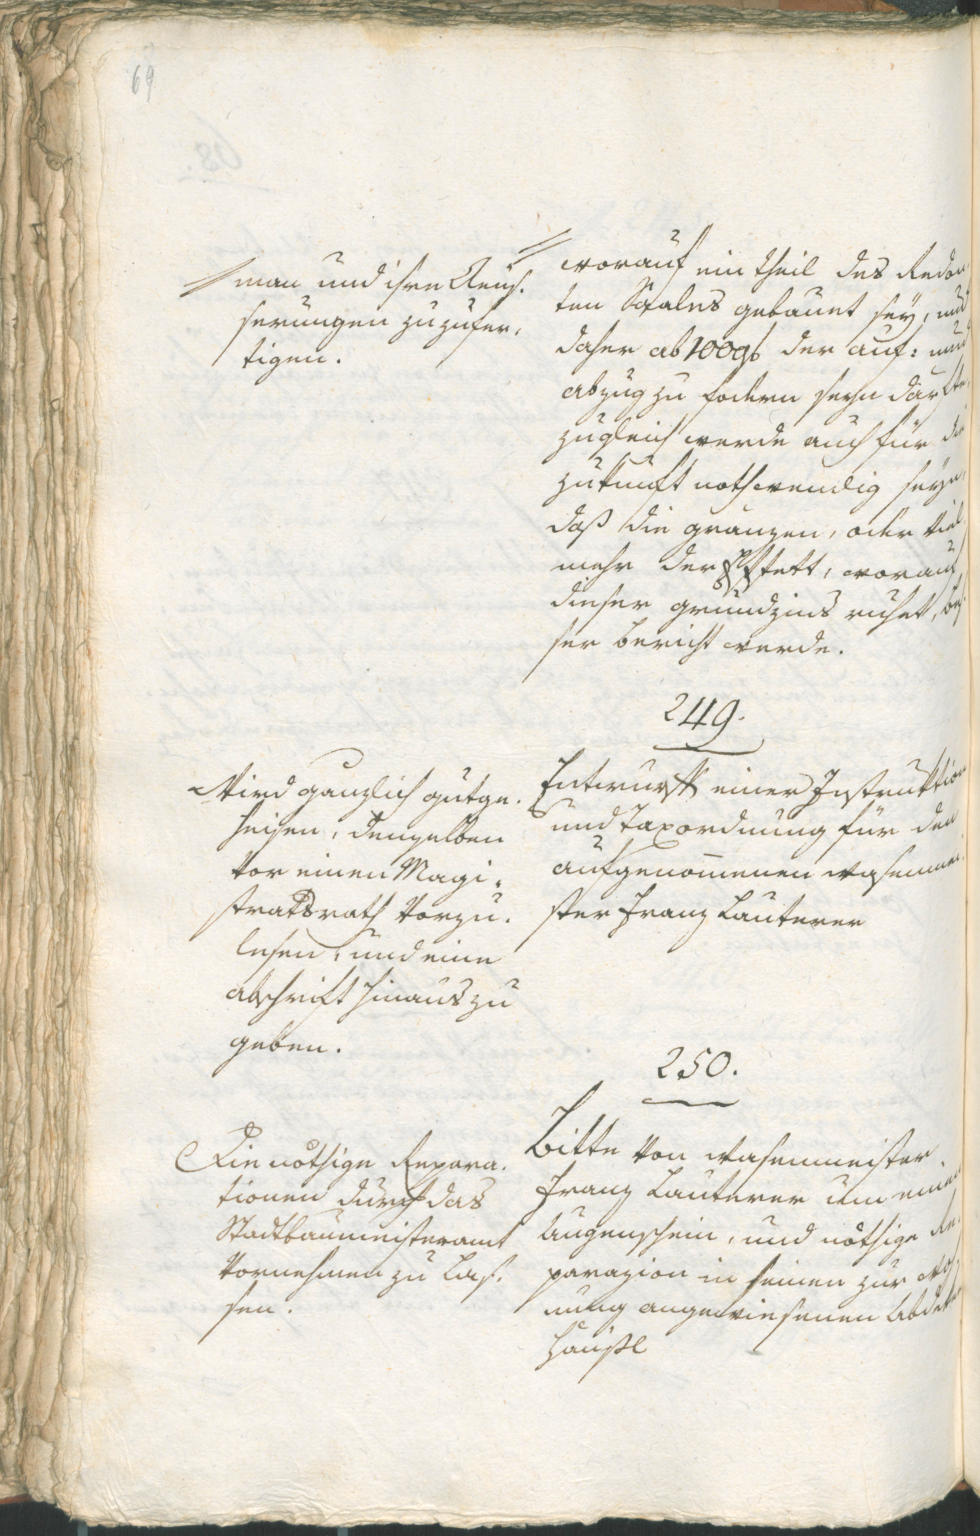 69
man und ihre Aeuß.
serungen zuzufer.
tigen.
worauf ein theil des Redou
ten Saales gebauet sey, und
daher ab 100 der auf: und
abzug zu fodern seyn darfte
zugleich werde auch für die
zukunft nothwendig seyn,
daß die gränzen, oder viel
mehr der statt, worauf
dieser grundzins ruhet, bes
ser bericht werde.
249.
Wird gänzlich gutge.
heisen, denselben
vor einen Magi.
stratsrath vorzu.
lesen, und eine
abschrift hinaus zu
geben.
Entwurf einer Instruktion
und Taxordnung für den
aufgenommenen wasenmei
ster Franz Lauterer
250.
Die nöthige Repara.
tionen durch das
Stadtbaumeisteramt
vornehmen zu laß.
sen.
Bitte von wasenmeister
Franz Lauterer um einen
Augenschein, und nöthige Re
parazion in seinen zur woh
nung angewiesenen Abdeker
häußl